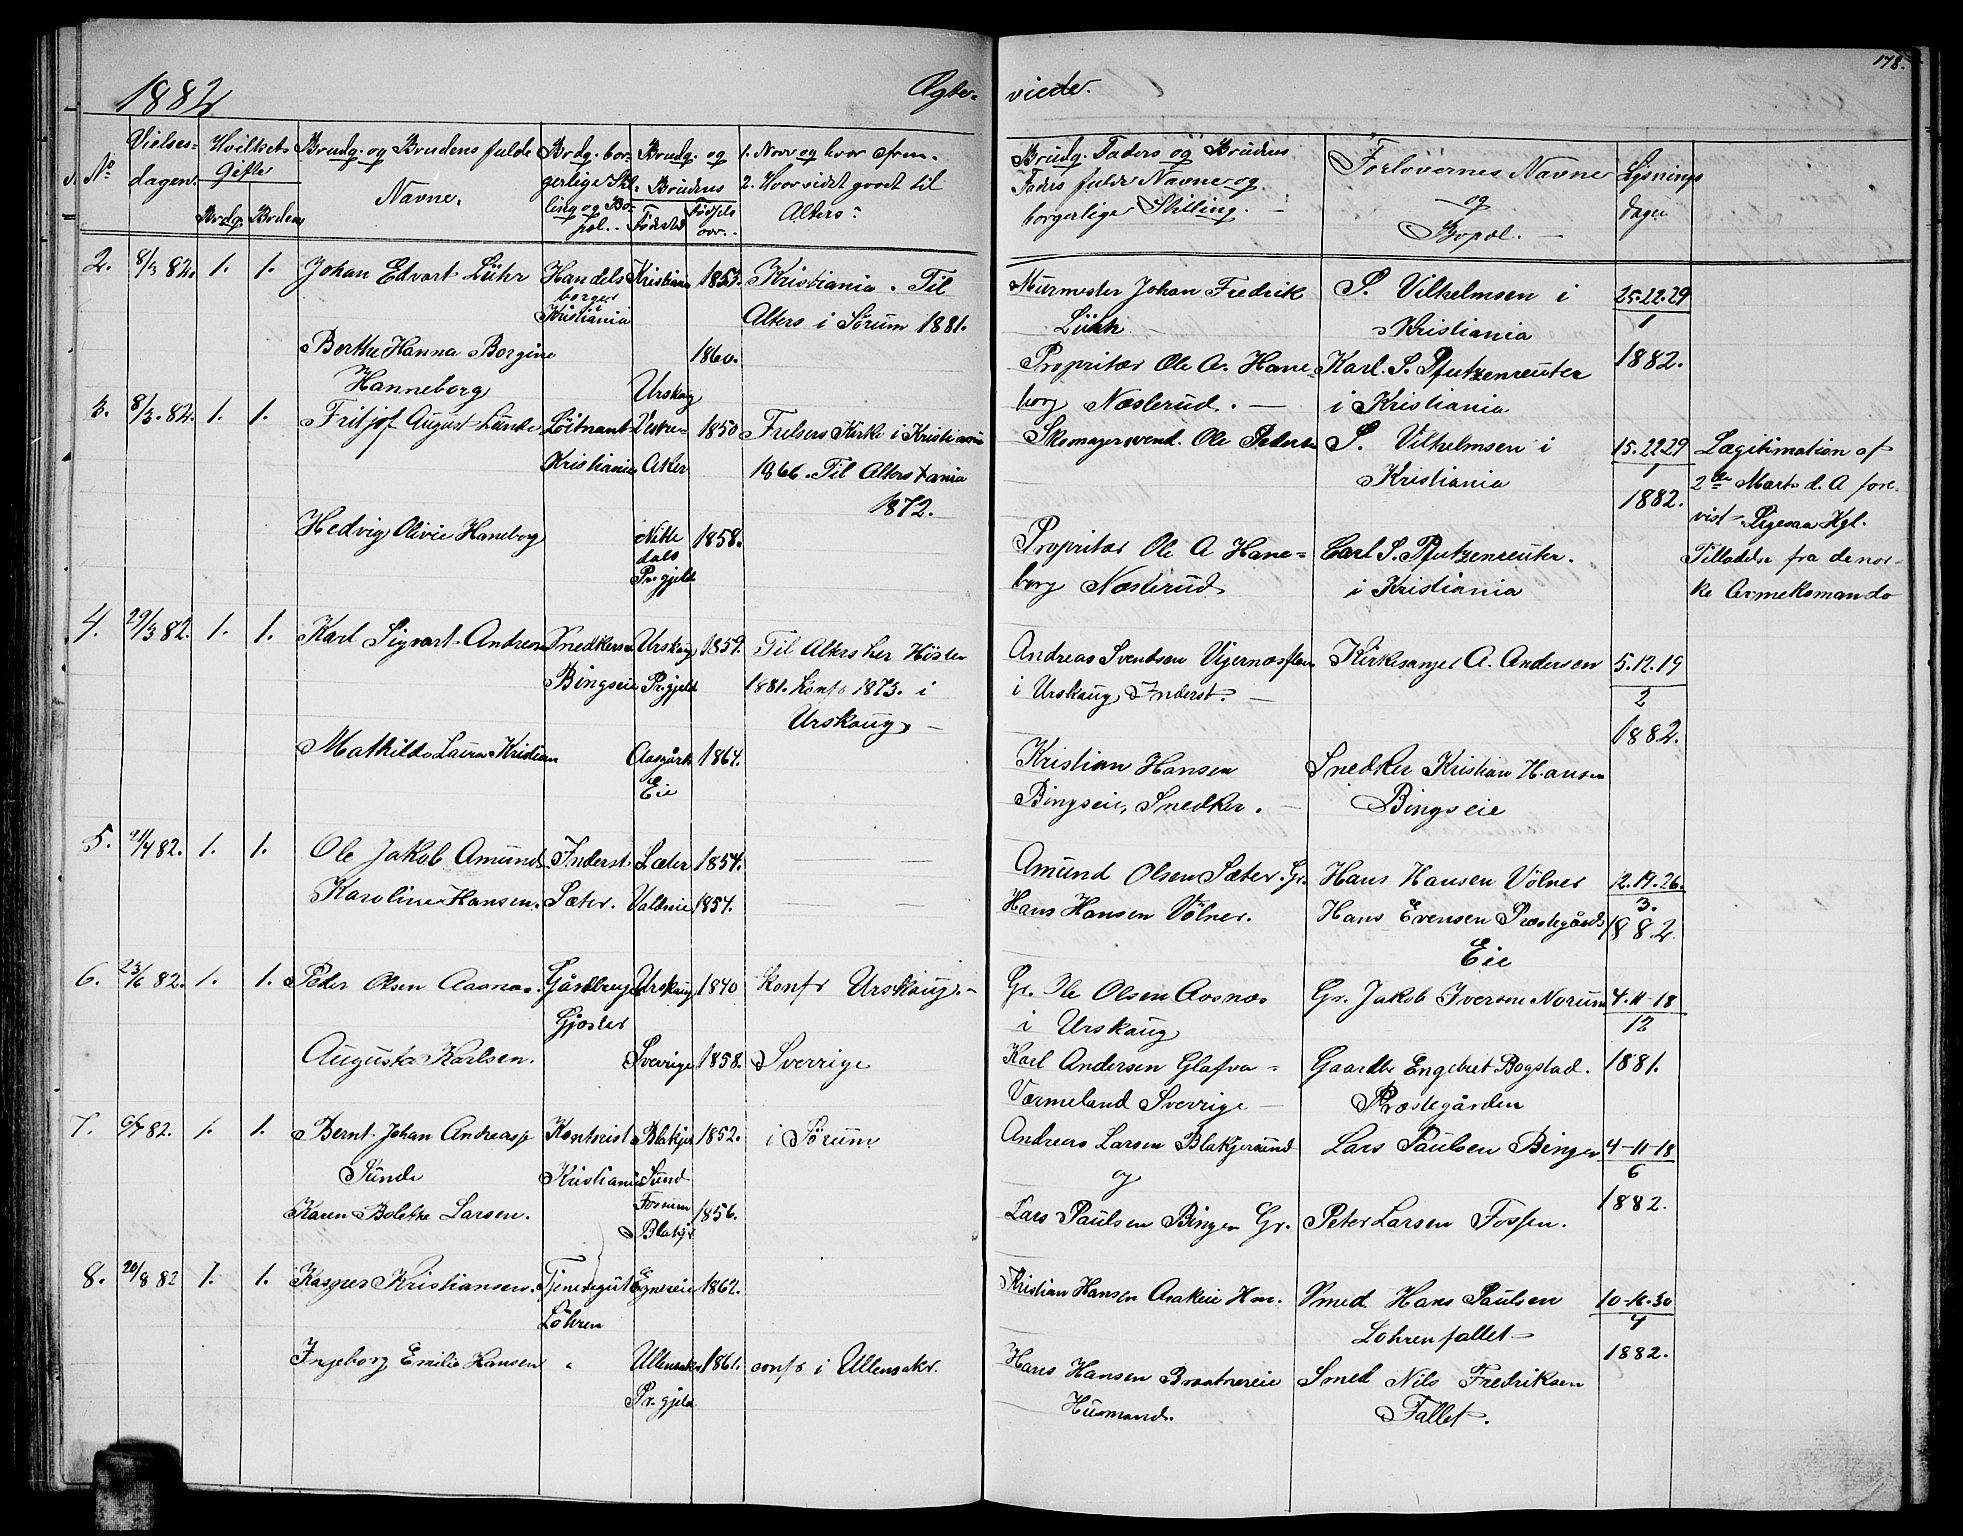 1882
Ægte-
viede.
178.
No
Vielses-
dagen.
Hvilket
Gifte
Brdg.
Bruden
Brudg. og Brudens fulde
Navne.
Brdg. bor-
gerlige Stil-
ling og Bo-
pæl.
Brudg. og
Brudens
Fødested
Fødsels
aar.
1. Naar og hvor
2. Hvor sidst gaaet til
Alters:
Brudg. Faders og Brudens
Faders fulde Navne og
borgerlige Stilling.
Forlovernes Navne
og
Bopæl.
Lysnings
dagen
2. 8/3 82. 1. 1. Johan Edvart Lühr Handels Kristiania 1853. Kristiania. Til
borger
Kristiania
Alters i Sørum 1881.
Murmester Johan Fredrik
S. Vilhelmsen i
Kristiania
25.22.29
1
1882.
Berthe Hanna Borgine
Hanneborg
Urskog
1860.
Propritær Ole A. Hane-
borg Næsterud.
Karl S. Pfutzenreuter
i Kristiania
3. 8/3. 82. 1. 1. Fritjof August Lunde Løitnant Vestre- 1850 Frelsers Kirke i Kristiania
Kristiania Aker 1866. Til Alters
1872.
Skomagersvend. Ole Pedersen
S. Vilhelmsen i
Kristiania
15.22.29
1
1882.
Lægitimation af
2den Marts d. A fore-
vist. Ligesaa Kgl.
Tilladelse fra de nor-
ke Armekomando
Hedvig Olivie Haneborg
Nitte
dals
Pr.gjeld
1858.
Propritær Ole A Hane-
borg Næsterud
Carl S. Pfutzenreuter.
i Kristiania
4. 29/3 82. 1. 1. Karl Sigvart Andresen Snedkersv Urskog 1859. Til Alters her Høsten
Bingseie Pr.gjeld 1881. Konf. 1873. i
Urskaug
Andreas Svendsen
i Urskaug Inderst.
Kirkesanger A. Andersen
5.12.19
2
1882.
Mathilde Laura Kristian
Eie
1864.
Kristian Hansen
Bingseie, Snedker.
Snedker Kristian Hansen
Bingseie
5. 21/4 82. 1. 1. Ole Jakob Amunds Inderst Sæter 1854.
Karoline Hansen. Sæter. 1854.
Amund Olsen Sæter. Gr.
Hans Hansen Vølner.
Hans Hansen Vølner
Hans Evensen Præstegårds
Eie
12.19.26.
3.
1882
6. 23/6 82. 1. 1. Peder Olsen Aasnæs. Gårdbruger Urskaug 1840 Konfr Urskaug.
Gjøster
Gr. Ole Olsen Aasnæs
i Urskaug
Gr. Jakob Iversen Norum
4-11-18
12
1881.
Augusta Karlsen.
Sverrige 1858. Sverrige
Karl Andersen Glafva
Værmeland Sverrige
Gaardbr Engebret Bogstad.
Præstegården
7. 6/7 82. 1. 1. Bernt Johan Andreas Kontorist Blakjer 1852. i Sørum
Sunde Kristiania Sund
Andreas Larsen Blakjersund
og
Lars Paulsen Bingen
4-11-18
6
1882.
Karen Bolette Larsen.
Fossum
Blakjer
1856.
Lars Paulsen Bingen Gr.
Peter Larsen Fossen.
8. 20/8 82 1. 1. Kasper Kristiansen. Tjenestgut Egnerseie 1862.
Løhren
Kristian Hansen Hm.
Smed Hans Paulsen
Løhrenfallet
10-16-30
4
1882.
Ingeborg Emilie Hansen " Ullensaker 1861. confr i Ullensakr.
Pr.gjeld
Hans Hansen Braatnereie
Husmand.
Smed Nils Fredriksen
Fallet.